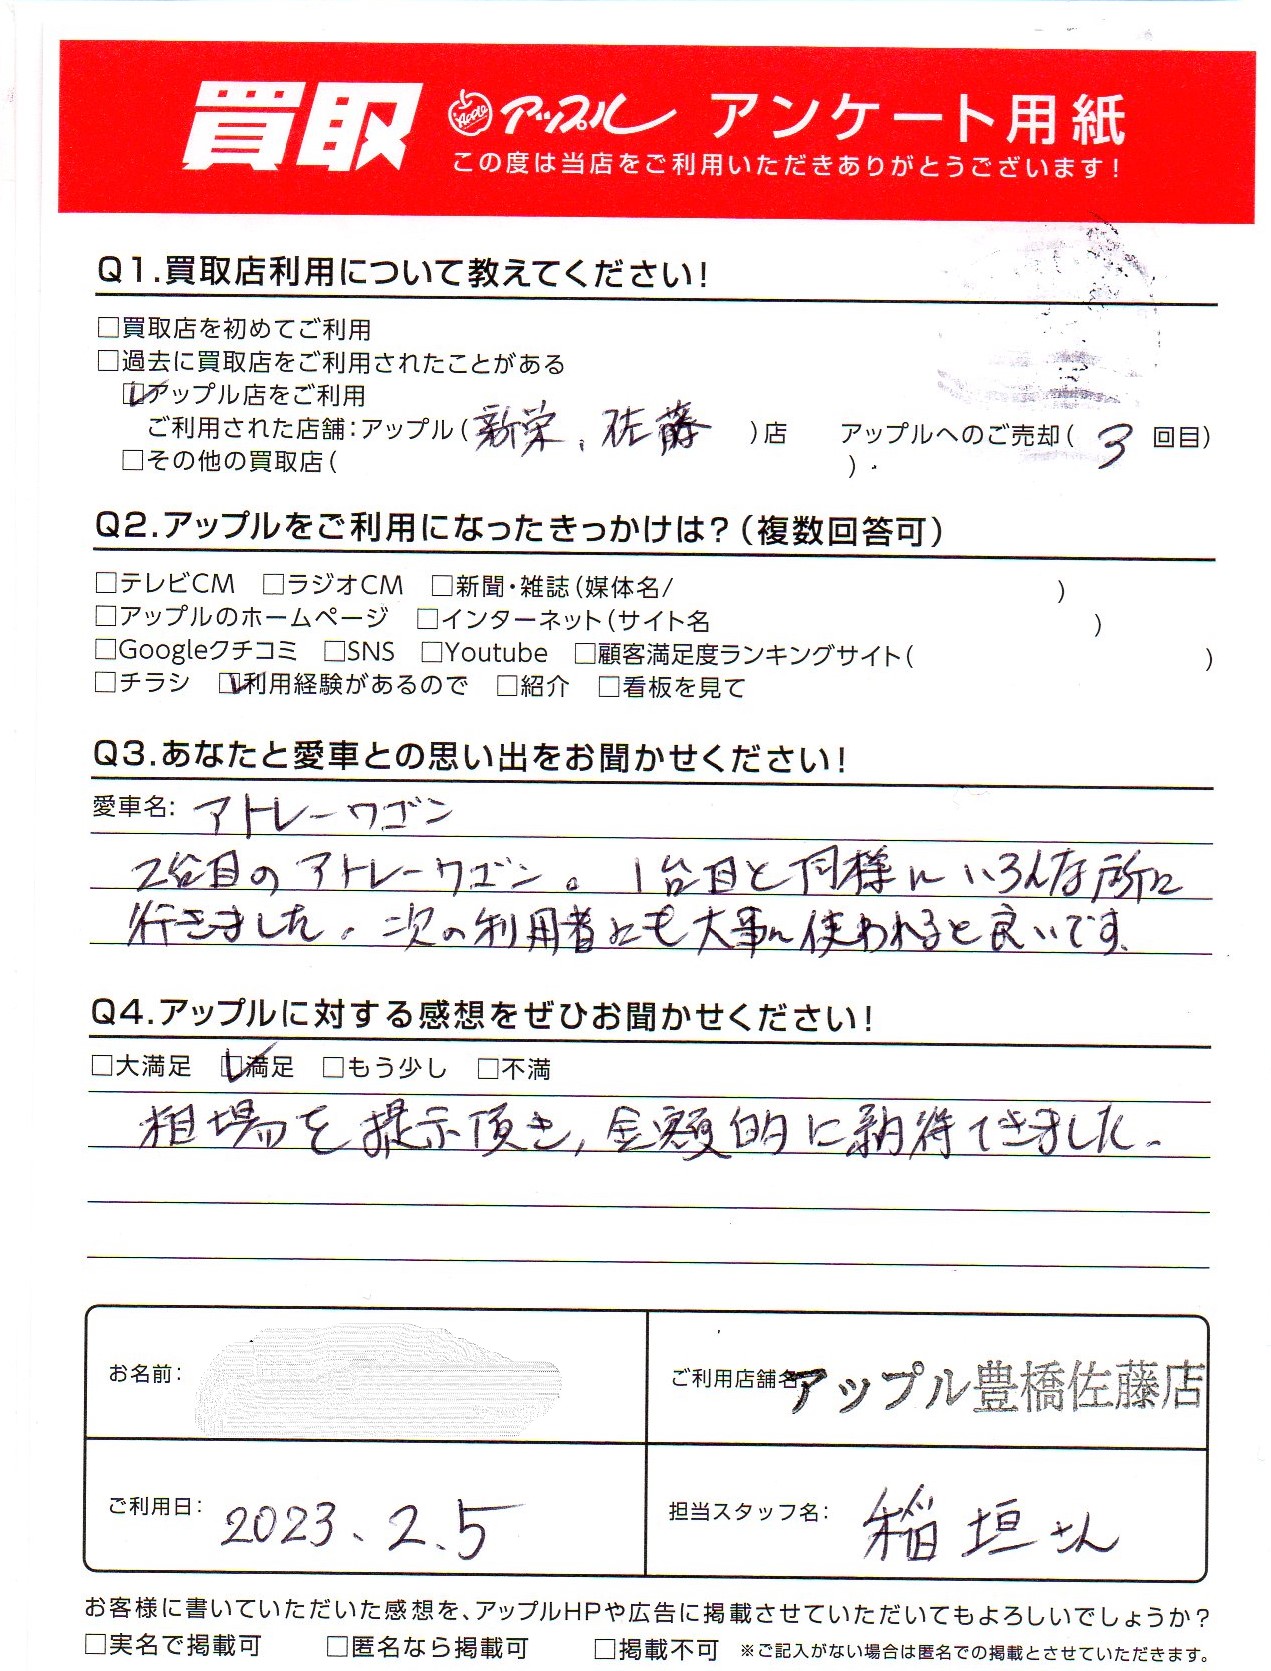 買取 Apple アップル アンケート用紙
この度は当店をご利用いただきありがとうございます!
Q1.買取店利用について教えてください!
□買取店を初めてご利用
□過去に買取店をご利用されたことがある
☑アップル店をご利用
ご利用された店舗:アップル(新栄、佐藤)店 アップルへのご売却(3回目)
□その他の買取店( )
Q2.アップルをご利用になったきっかけは?(複数回答可)
□テレビCM □ラジオCM □新聞・雑誌(媒体名/ )
□アップルのホームページ □インターネット(サイト名 )
□Googleクチコミ □SNS □Youtube □顧客満足度ランキングサイト( )
□チラシ ☑利用経験があるので □紹介 □看板を見て
Q3.あなたと愛車との思い出をお聞かせください!
愛車名: アトレーワゴン
2台目のアトレーワゴン。1台目と同様にいろんな所に
行きました。次の利用者にも大事に使われると良いです。
Q4.アップルに対する感想をぜひお聞かせください!
□大満足 ☑満足 □もう少し □不満
相場を提示頂き、金額的に納得できました。
お名前:
ご利用店舗名 アップル豊橋佐藤店
ご利用日: 2023、2、5
担当スタッフ名: 稲垣さん
お客様に書いていただいた感想を、アップルHPや広告に掲載させていただいてもよろしいでしょうか?
□実名で掲載可 □匿名なら掲載可 □掲載不可 ※ご記入がない場合は匿名での掲載とさせていただきます。